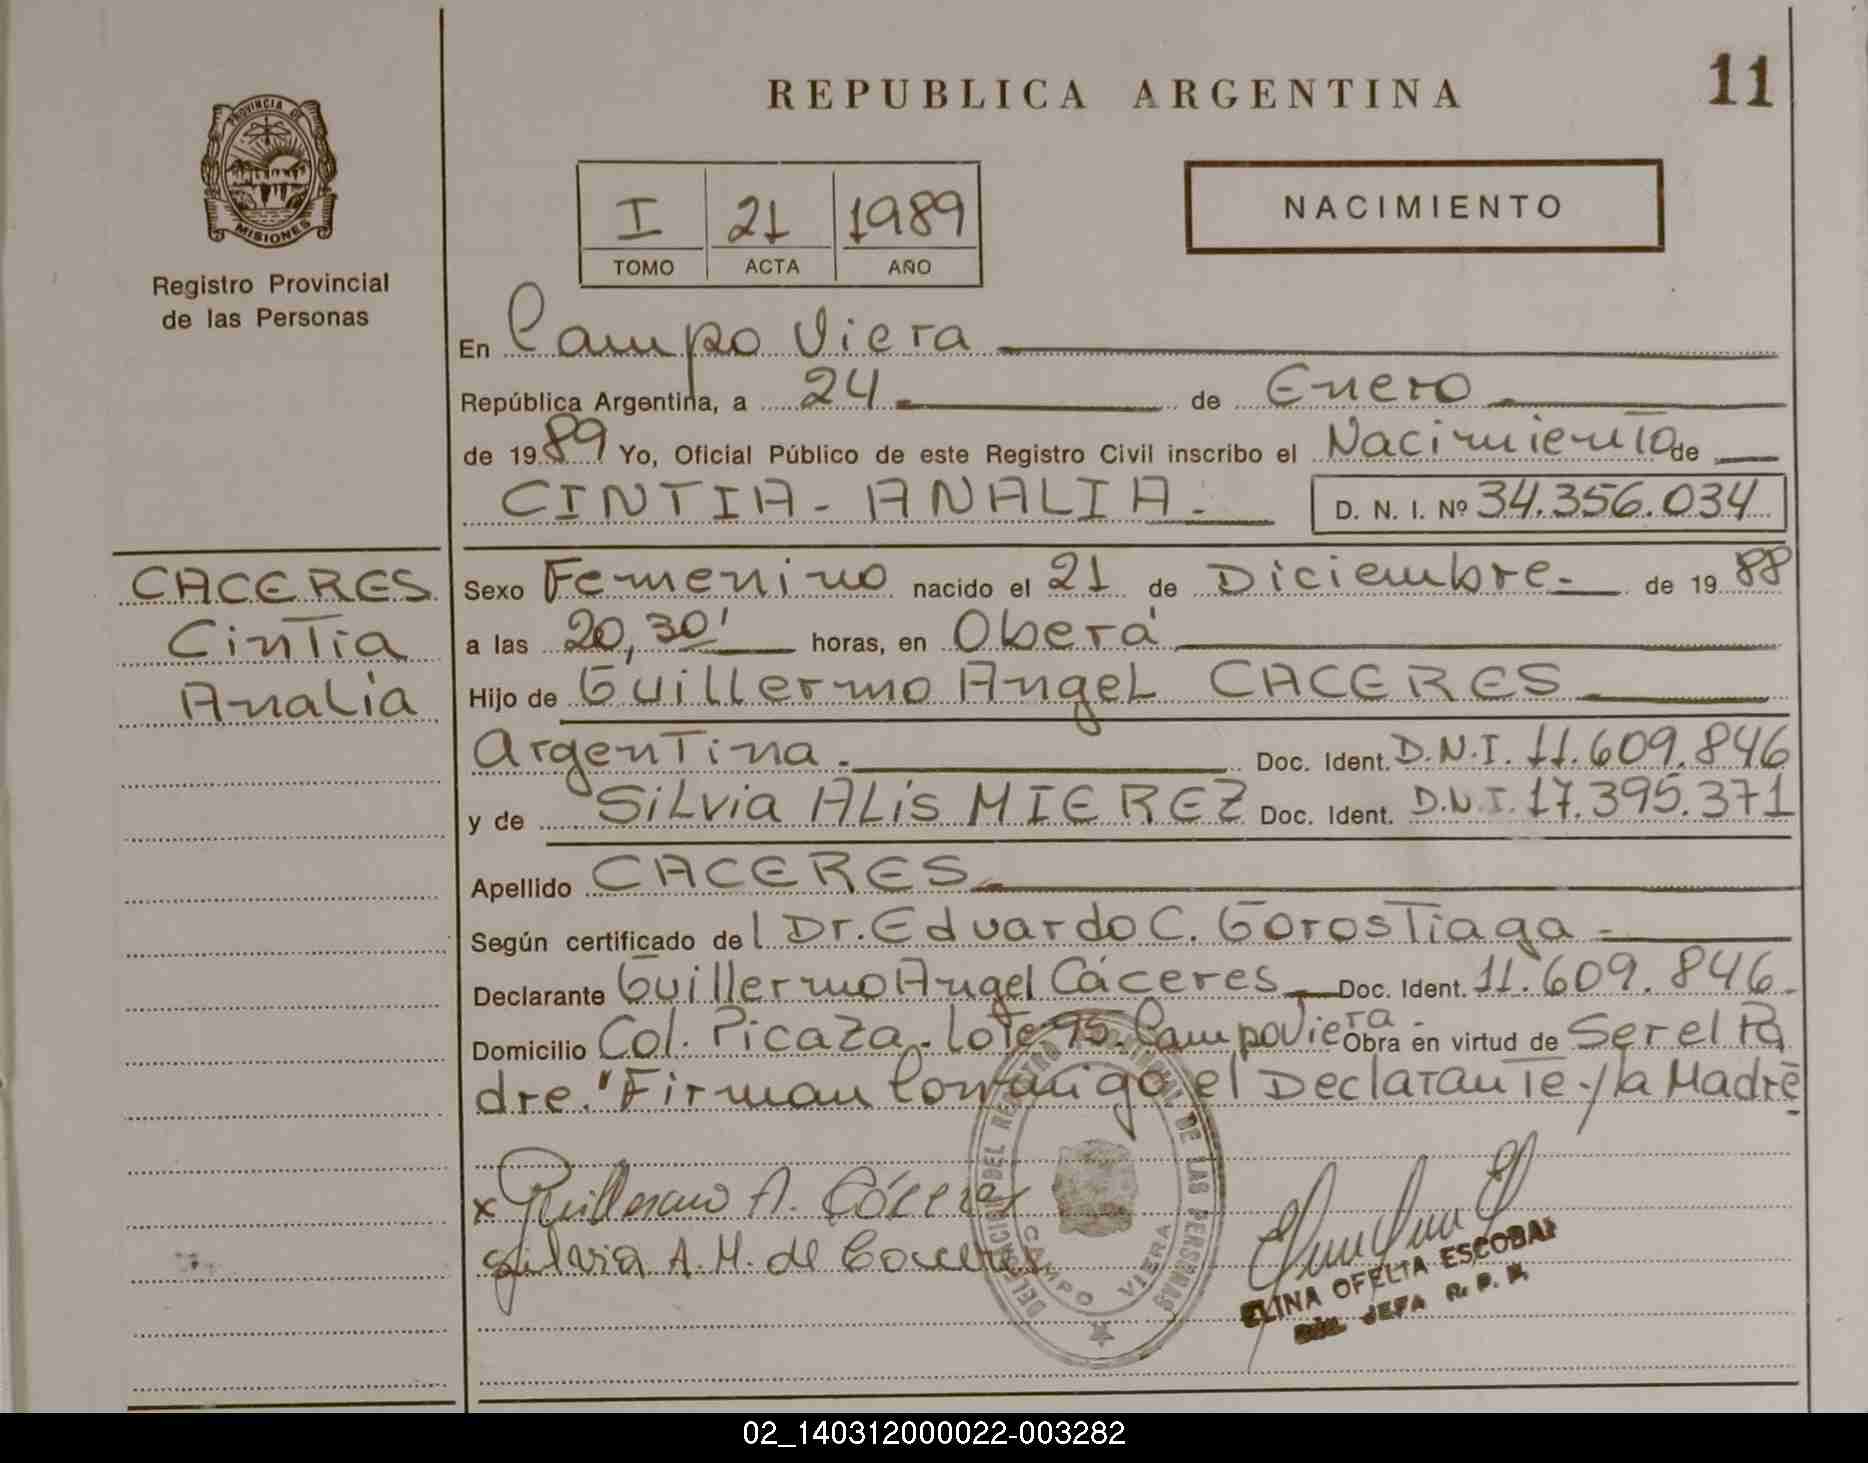 REPUBLICA ARGENTINA
11
PROVINCIA DE
MISIONES
Registro Provincial
de las Personas
I 21 1989
TOMO ACTA AÑO
NACIMIENTO
En Campo Viera
República Argentina, a 24 de Enero
de 1989 Yo, Oficial Público de este Registro Civil inscribo el Nacimiento de
CINTIA - ANALIA - D. N. I. Nº 34.356.034
CACERES
Cintia
Analia
Sexo Femenino nacido el 21 de Diciembre - de 1988
a las 20,30' horas, en Oberá
Hijo de Guillermo Angel CACERES
Argentina. Doc. Ident. D.N.I. 11.609.846
y de Silvia Alis MIEREZ Doc. Ident. D.N.I. 17.395.371
Apellido CACERES
Según certificado del Dr. Eduardo C. Gorostiaga -
Declarante Guillermo Angel Cáceres Doc. Ident. 11.609.846
Domicilio Col. Picaza. Lote 95. Campo Viera - Obra en virtud de Ser el Pa
dre. "Firman Conmigo el Declarante y la Madre
x Guillermo A. Cáceres
Silvia A. M. de Caceres
DEL REGISTRO PROVINCIAL DE LAS PERSONAS
CAMPO VIERA
ELINA OFELIA ESCOBAR
JEFA R. P. P.
02_140312000022-003282